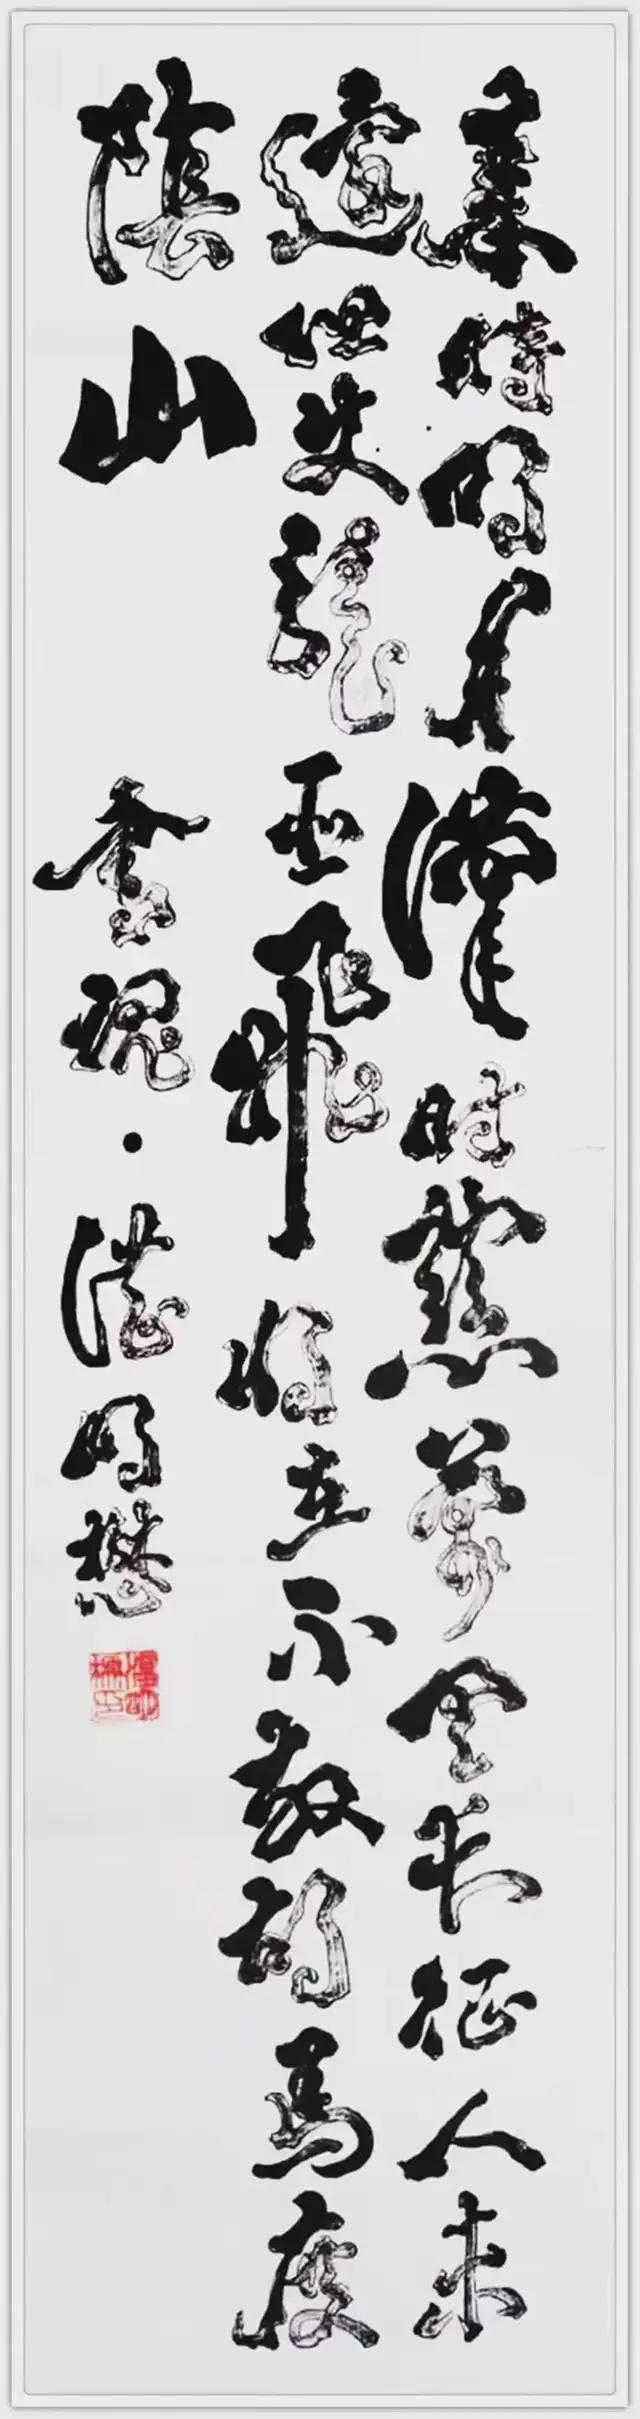 秦時明月漢时關萬里長征人未
還但使龍城飛將在不教胡馬度
陰山
書魂·明懋